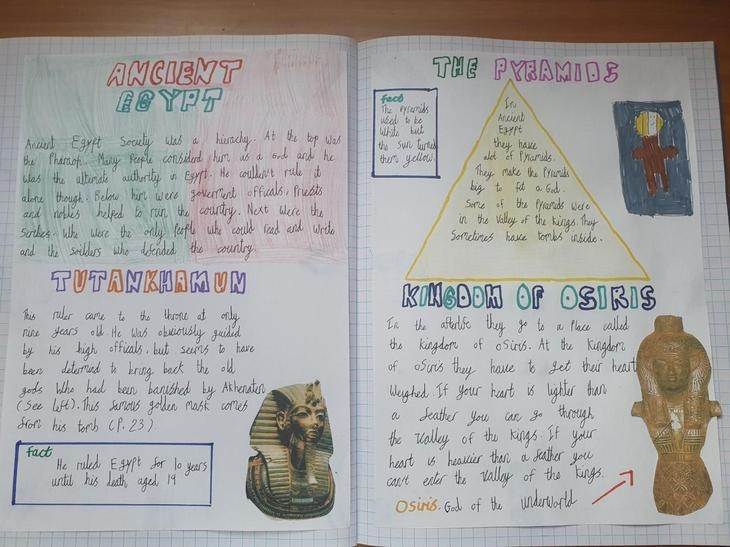 ANCIENT
EGYPT
Ancient Egypt Society was a hierachy. At the top was
the Pharaoh. Many People considerd him as a God and he
was the ultimate authority in Egypt. He couldn't rule it
alone though. Below him were goverment officals, Priests
and nobles helped to run the country. Next were the
Scribes. Who were the only people who could read and write
and the soilders who defended the country.
TUTANKHAMUN
This ruler came to the throne at only
nine years old. He was obviously guided
by his high officals, but seems to have
been determed to bring back the old
gods who had been banished by Akhenaten
(See left). This famous golden mask comes
from his tomb (P. 23).
fact
He ruled Egypt for 10 years
until his death, aged 19
THE PYRAMIDS
fact
The Pyramids
used to be
white but
the sun turned
them yellow.
In
Ancient
Egypt
they have
alot of Pyramids.
They make the Pyramids
big to fit a God.
Some of the Pyramids were
in the Valley of the Kings. They
Sometimes have tombs inside.
KINGDOM OF OSIRIS
In the afterlife they go to a Place called
the kingdom of osiris. At the kingdom
of osiris they have to get their heart
Weighed. If your heart is lighter than
a feather you can go through
the Valley of the Kings. If your
heart is heavier than a feather you
can't enter the Valley of the Kings.
Osiris. God of the underworld